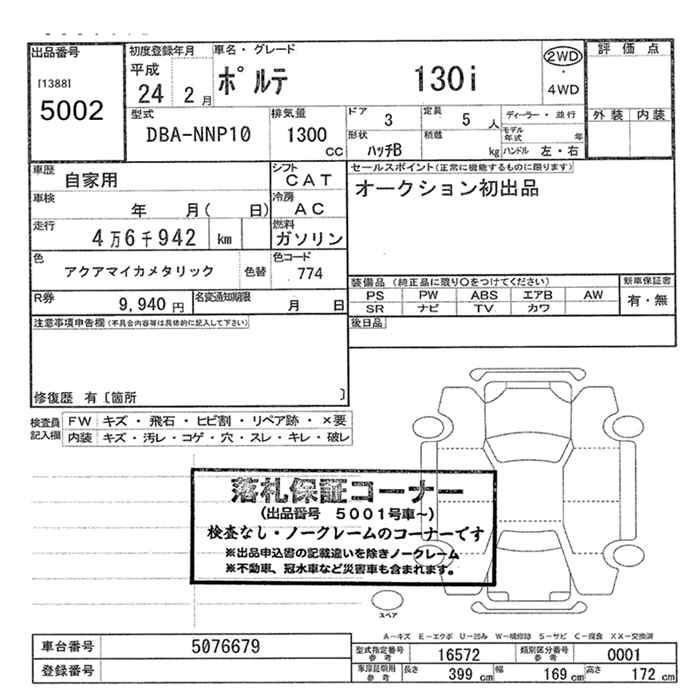 出品番号
[1388]
5002
初度登録年月
平成
24 2月
車名・グレード
ポルテ 130i
2WD
・
4WD
評価点
外装 内装
型式
DBA-NNP10
排気量
1300
CC
ドア
3
定員
5 人
ディーラー・並行
モデル年式 年
形状
ハッチB
積載
kg
ハンドル 左・右
車歴
自家用
シフト
CAT
セールスポイント(正常に機能するものに限ります)
オークション初出品
車検
年 月( 日)
冷房
AC
走行
4万6千942 km
燃料
ガソリン
色
アクアマイカメタリック
色替
色コード
774
装備品(純正品に限り○をつけてください)
PS PW ABS エアB AW
SR ナビ TV カワ
新車保証書
有・無
R券
9,940円
名変通知期限
月 日
後日品
注意事項申告欄(不具合内容等は具体的に記入して下さい)
修復歴 有〔箇所 〕
検査員記入欄
FW キズ・飛石・ヒビ割・リペア跡・×要
内装 キズ・汚レ・コゲ・穴・スレ・キレ・破レ
落札保証コーナー
(出品番号 5001号車~)
検査なし・ノークレームのコーナーです
※出品申込書の記載違いを除きノークレーム
※不動車、冠水車など災害車も含まれます。
スペア
A-キズ E-エクボ U-凹み W-補修跡 S-サビ C-腐食 XX-交換済
車台番号 5076679
型式指定番号参考 16572
類別区分番号参考 0001
登録番号
車庫証明用参考
長さ 399 cm
幅 169 cm
高さ 172 cm